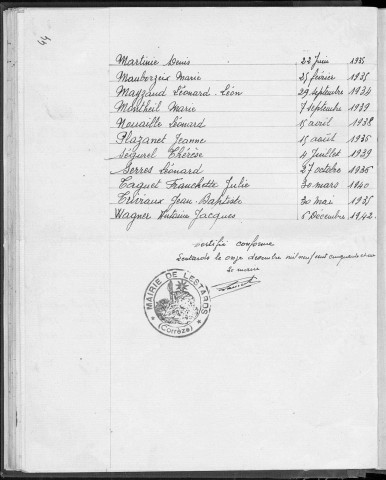 64
Martinie Denis 22 Juin 1935
Mauborzeix Marie 25 février 1935
Mayzaud Léonard-Léon 29 septembre 1934
Montheil Marie 7 septembre 1939
Nouaille Léonard 15 avril 1938
Plazanet Jeanne 15 août 1936
Ségurel Thérèse 4 juillet 1939
Serres Léonard 27 octobre 1936
Taguet Franchette Julie 30 mars 1940
Triviaux Jean-Baptiste 30 mai 1935
Wagner Antoine Jacques 6 Décembre 1942
certifié conforme
Lestards le onze décembre mil neuf cent cinquante et un
Le maire
MAIRIE DE LESTARDS
(Corrèze)